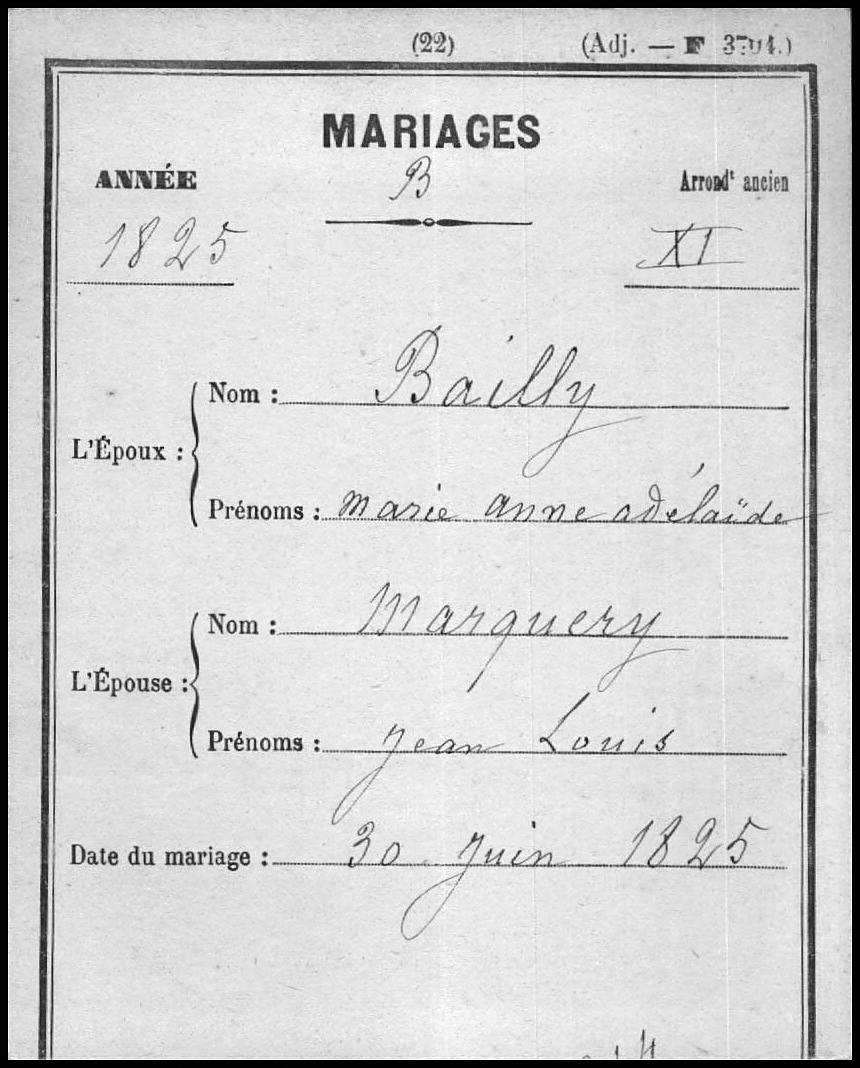 (22) (Adj. — F 3704.)
MARIAGES
ANNÉE B Arrondt ancien
1825 XI
L'Époux : Nom : Bailly
Prénoms : Marie anne adélaïde
L'Épouse : Nom : Marquery
Prénoms : Jean Louis
Date du mariage : 30 Juin 1825